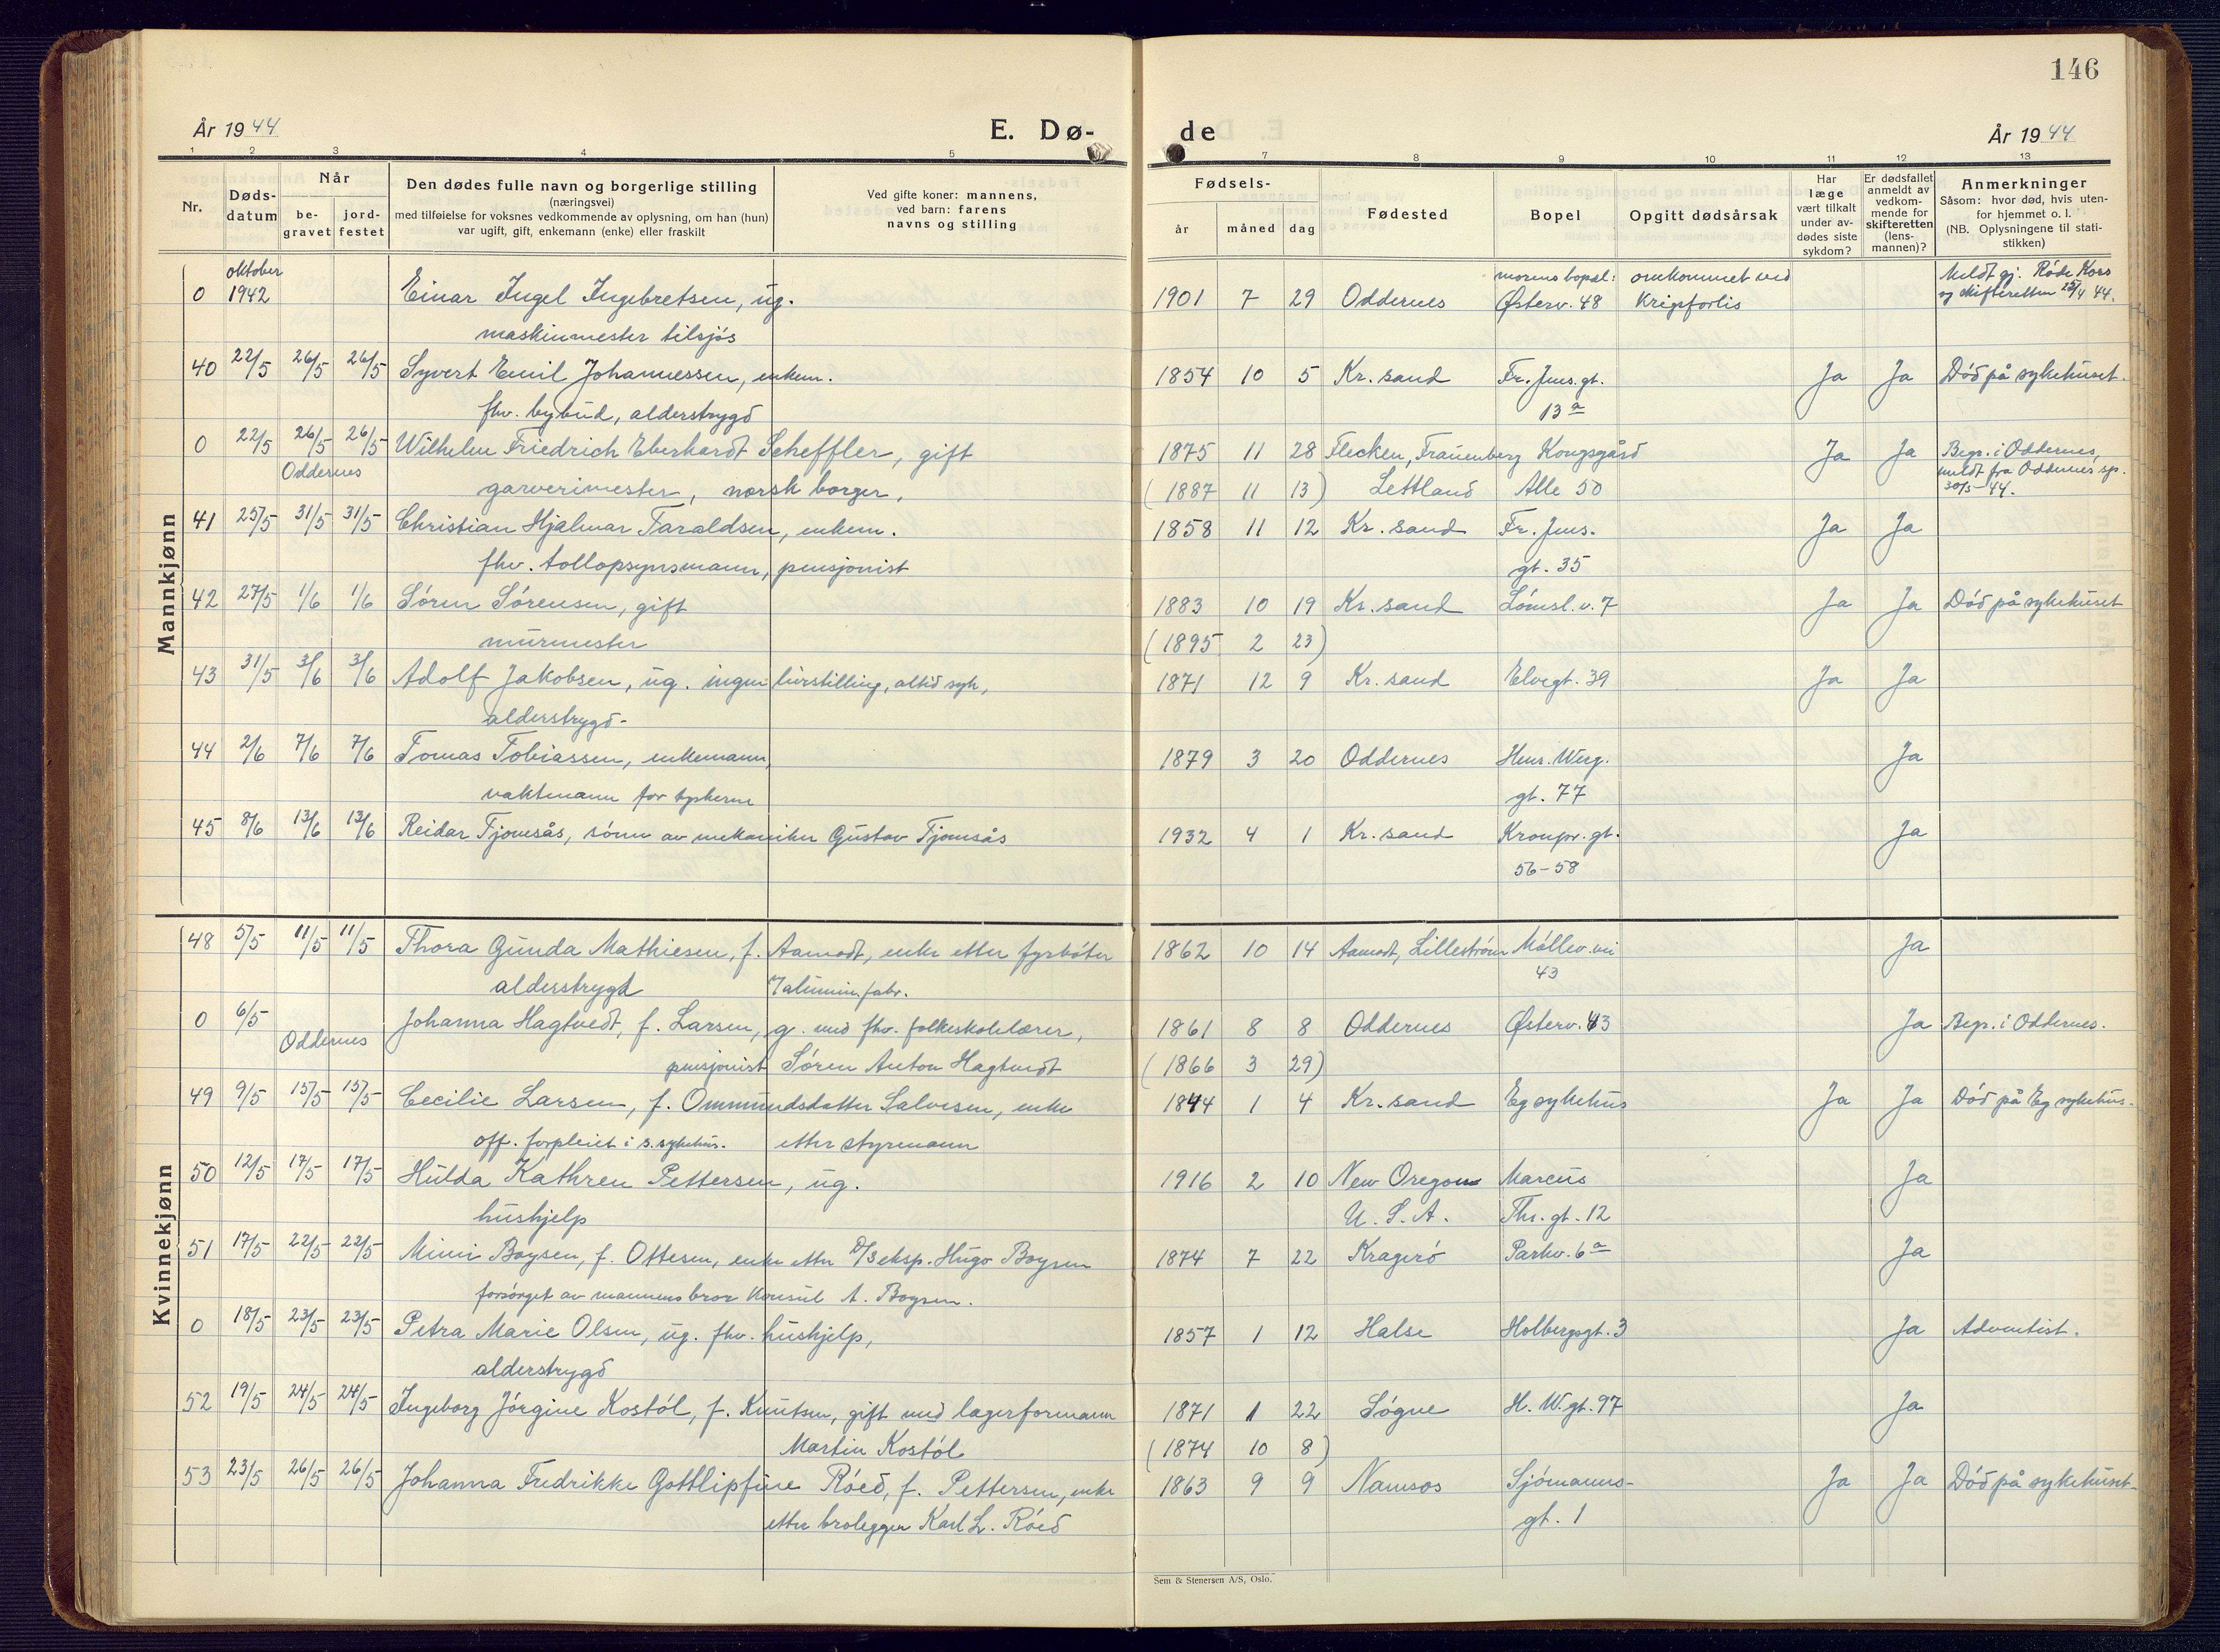 146
År 1944 E. Dø- de År 1944
1 2 3 4 5 7 8 9 10 11 12 13
Nr. Døds-datum Når be-gravet jord-festet
Den dødes fulle navn og borgerlige stilling
(næringsvei)
med tilføielse for voksnes vedkommende av oplysning, om han (hun)
var ugift, gift, enkemann (enke) eller fraskilt
Ved gifte koner: mannens,
ved barn: farens
navns og stilling
Fødsels- år måned dag Fødested Bopel Opgitt dødsårsak
Har læge vært tilkalt under av-dødes siste sykdom?
Er dødsfallet anmeldt av vedkom-mende for skifteretten (lens-mannen)?
Anmerkninger
Såsom: hvor død, hvis uten-for hjemmet o. l.
(NB. Oplysningene til stati-stikken)
Mannkjønn
oktober morens bopel: omkommet ved Meldt gj. Røde Kors
0 1942 Einar Ingel Ingebretsen, ug. 1901 7 29 Oddernes Østerv. 48 Krigsforlis og skifteretten 25/4 44.
maskinmester tilsjøs
40 22/5 26/5 26/5 Syvert Emil Johannessen, enkem. 1854 10 5 Kr. sand Fr. Jens. gt. Ja Ja Død på sykehuset.
fhv. bybud, alderstrygd 13 a
0 22/5 26/5 26/5 Wilhelm Friedrich Eberhardt Scheffler, gift 1875 11 28 Flecken, Frauenberg Kongsgård Ja Ja Begr. i Oddernes,
Oddernes garverimester, norsk borger. (1887 11 13) Lettland Alle 50 meldt fra Oddernes sp.
30/5 44.
41 25/5 31/5 31/5 Christian Hjalmar Taraldsen, enkem. 1858 11 12 Kr. sand Fr. Jens. Ja Ja
fhv. tollopsynsmann, pensjonist gt. 35
42 27/5 1/6 1/6 Søren Sørensen, gift 1883 10 19 Kr. sand Lømsl. v. 7 Ja Ja Død på sykehuset
murmester (1895 2 23)
43 31/5 3/6 3/6 Adolf Jakobsen, ug. ingen livsstilling, altid syk, 1871 12 9 Kr. sand Elvegt. 39 Ja Ja
alderstrygd.
44 2/6 7/6 7/6 Tomas Tobiassen, enkemann, 1879 3 20 Oddernes Henr. Werg. Ja
vaktmann for tyskerne gt. 77
45 8/6 13/6 13/6 Reidar Tjomsås, sønn av mekaniker Gustav Tjomsås 1932 4 1 Kr. sand Kronpr. gt. Ja
56-58
Kvinnekjønn
48 5/5 11/5 11/5 Thora Gunda Mathiesen, f. Aamodt, enke etter fyrbøter 1862 10 14 Aamodt, Lillestrøm Møllev.
alderstrygd alumin. fabr. 43 Ja
0 6/5 Johanna Hagtvedt, f. Larsen, g. med fhv. folkeskolelærer, 1861 8 8 Oddernes Østerv. 43 Ja Begr. i Oddernes.
Oddernes pensjonist Søren Anton Hagtvedt (1866 3 29)
49 9/5 15/5 15/5 Cecilie Larsen, f. Ommundsdatter Salvesen, enke 1844 1 4 Kr. sand Eg sykehus Ja Ja Død på Eg sykehus.
off. forpleiet i s. sykehus. etter styrmann
50 12/5 17/5 17/5 Hulda Kathren Pettersen, ug. 1916 2 10 New Oregon Marcus Ja
hushjelp U. S. A. Thr. gt. 12
51 17/5 22/5 22/5 Mimi Boysen, f. Ottesen, enke etter D/S eksp. Hugo Boysen 1874 7 22 Kragerø Parkv. 6 a Ja
forsørget av mannens bror Konsul A. Boysen.
0 18/5 23/5 23/5 Petra Marie Olsen, ug. fhv. hushjelp, 1857 1 12 Halse Holbergsgt. 3 Ja Adventist.
alderstrygd
52 19/5 24/5 24/5 Ingeborg Jørgine Kostøl, f. Knutsen, gift med lagerformann 1871 1 22 Søgne H. W. gt. 97 Ja
Martin Kostøl (1874 10 8)
53 23/5 26/5 26/5 Johanna Fredrikke Gottlipfine Røed, f. Pettersen, enke 1863 9 9 Namsos Sjømanns- Ja Ja Død på sykehuset.
etter brolegger Karl L. Røed gt. 1
Sem & Stenersen A/S, Oslo.